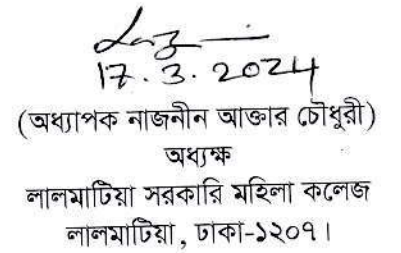 17.3.2024
(অধ্যাপক নাজনীন আক্তার চৌধুরী)
অধ্যক্ষ
লালমাটিয়া সরকারি মহিলা কলেজ
লালমাটিয়া, ঢাকা-১২০৭।